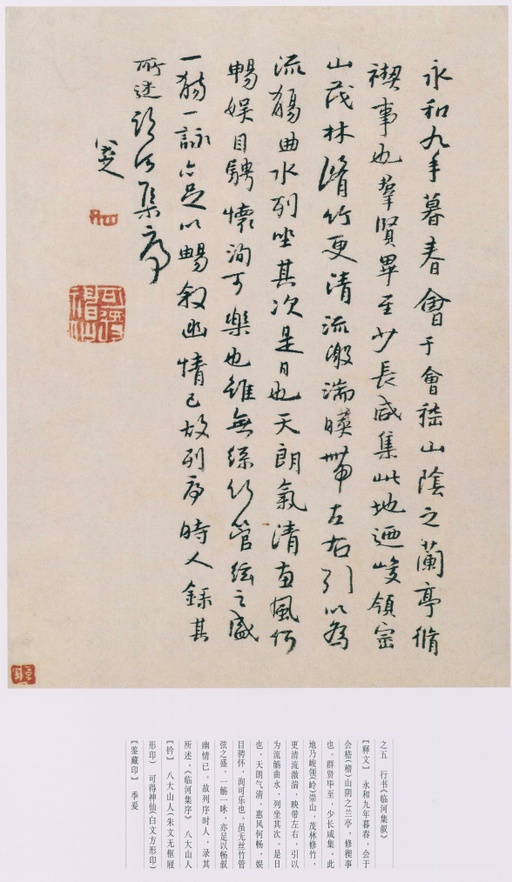 永和九年暮春會于會嵇山陰之蘭亭脩
禊事也羣賢畢至少長咸集此地迺峻領崇
山茂林脩竹更清流激湍暎帶左右引以為
流觴曲水列坐其次是日也天朗氣清惠風何
暢娛目騁懷洵可樂也雖無絲竹管絃之盛
一觴一詠亦足以暢敘幽情已故列序時人錄其
所述臨河集序
八大山人
可得神仙
之五　行书《临河集叙》
【释文】　永和九年暮春，会于
会嵇(稽)山阴之兰亭，修禊事
也。群贤毕至，少长咸集，此
地乃峻领(岭)崇山，茂林修竹，
更清流激湍，映带左右，引以
为流觞曲水，列坐其次。是日
也，天朗气清，惠风何畅，娱
目骋怀，洵可乐也。虽无丝竹管
弦之盛，一觞一咏，亦足以畅叙
幽情已。故列序时人，录其
所述。《临河集序》　八大山人
【钤】　八大山人(朱文无框屐
形印)　可得神仙(白文方形印)
【鉴藏印】　季爰